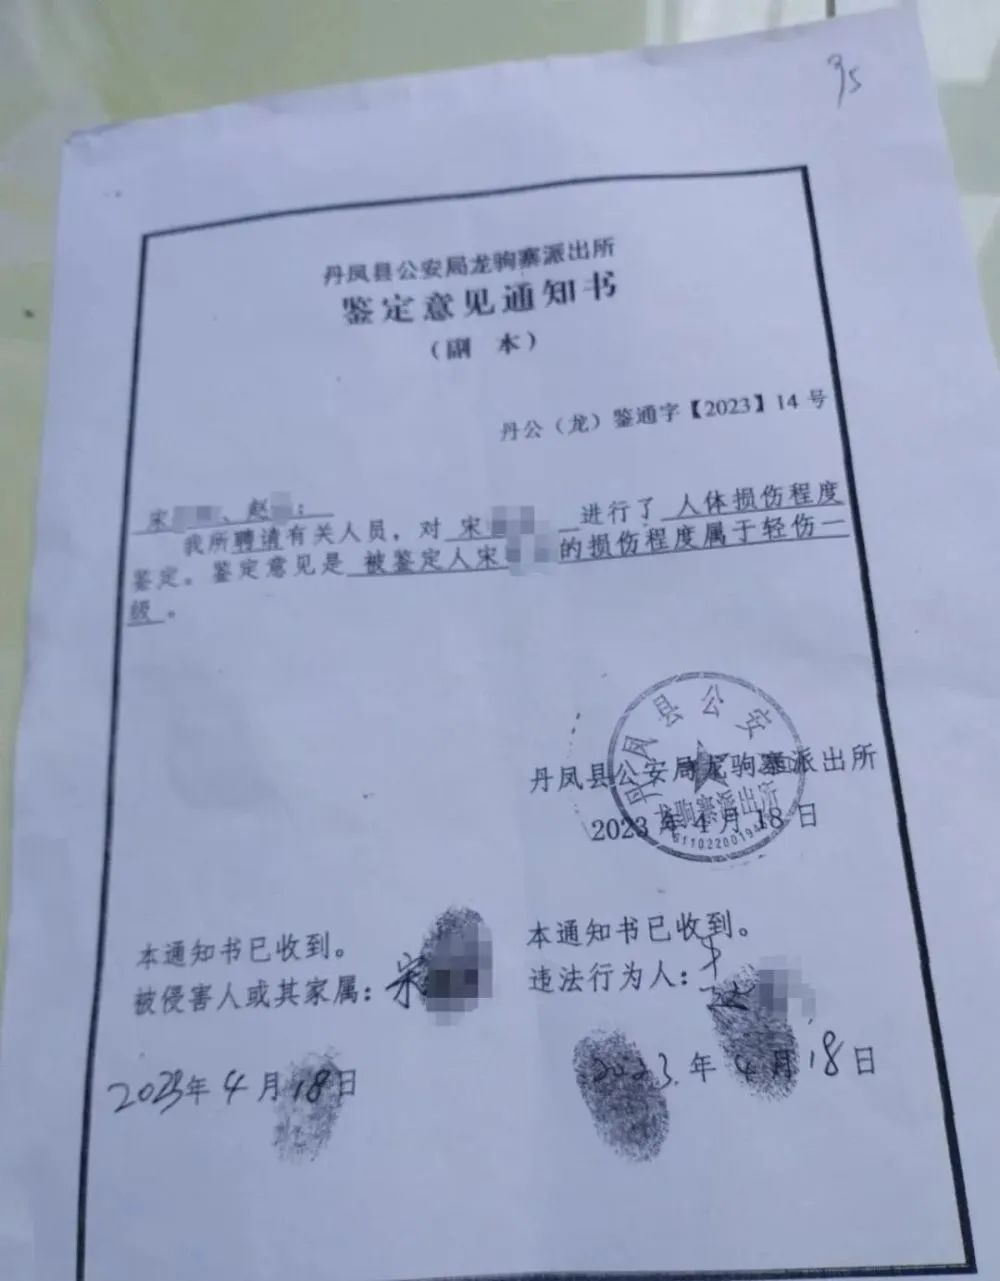 35
丹凤县公安局龙驹寨派出所
鉴定意见通知书
（副 本）
丹公（龙）鉴通字【2023】14号
宋、赵：
我所聘请有关人员，对 宋 进行了 人体损伤程度
鉴定。鉴定意见是 被鉴定人宋的损伤程度属于轻伤一
级。
丹凤县公安局龙驹寨派出所
2023年4月18日
丹凤县公安局
龙驹寨派出所
本通知书已收到。
被侵害人或其家属：宋
2023年4月18日
本通知书已收到。
违法行为人：
2023.年4月18日